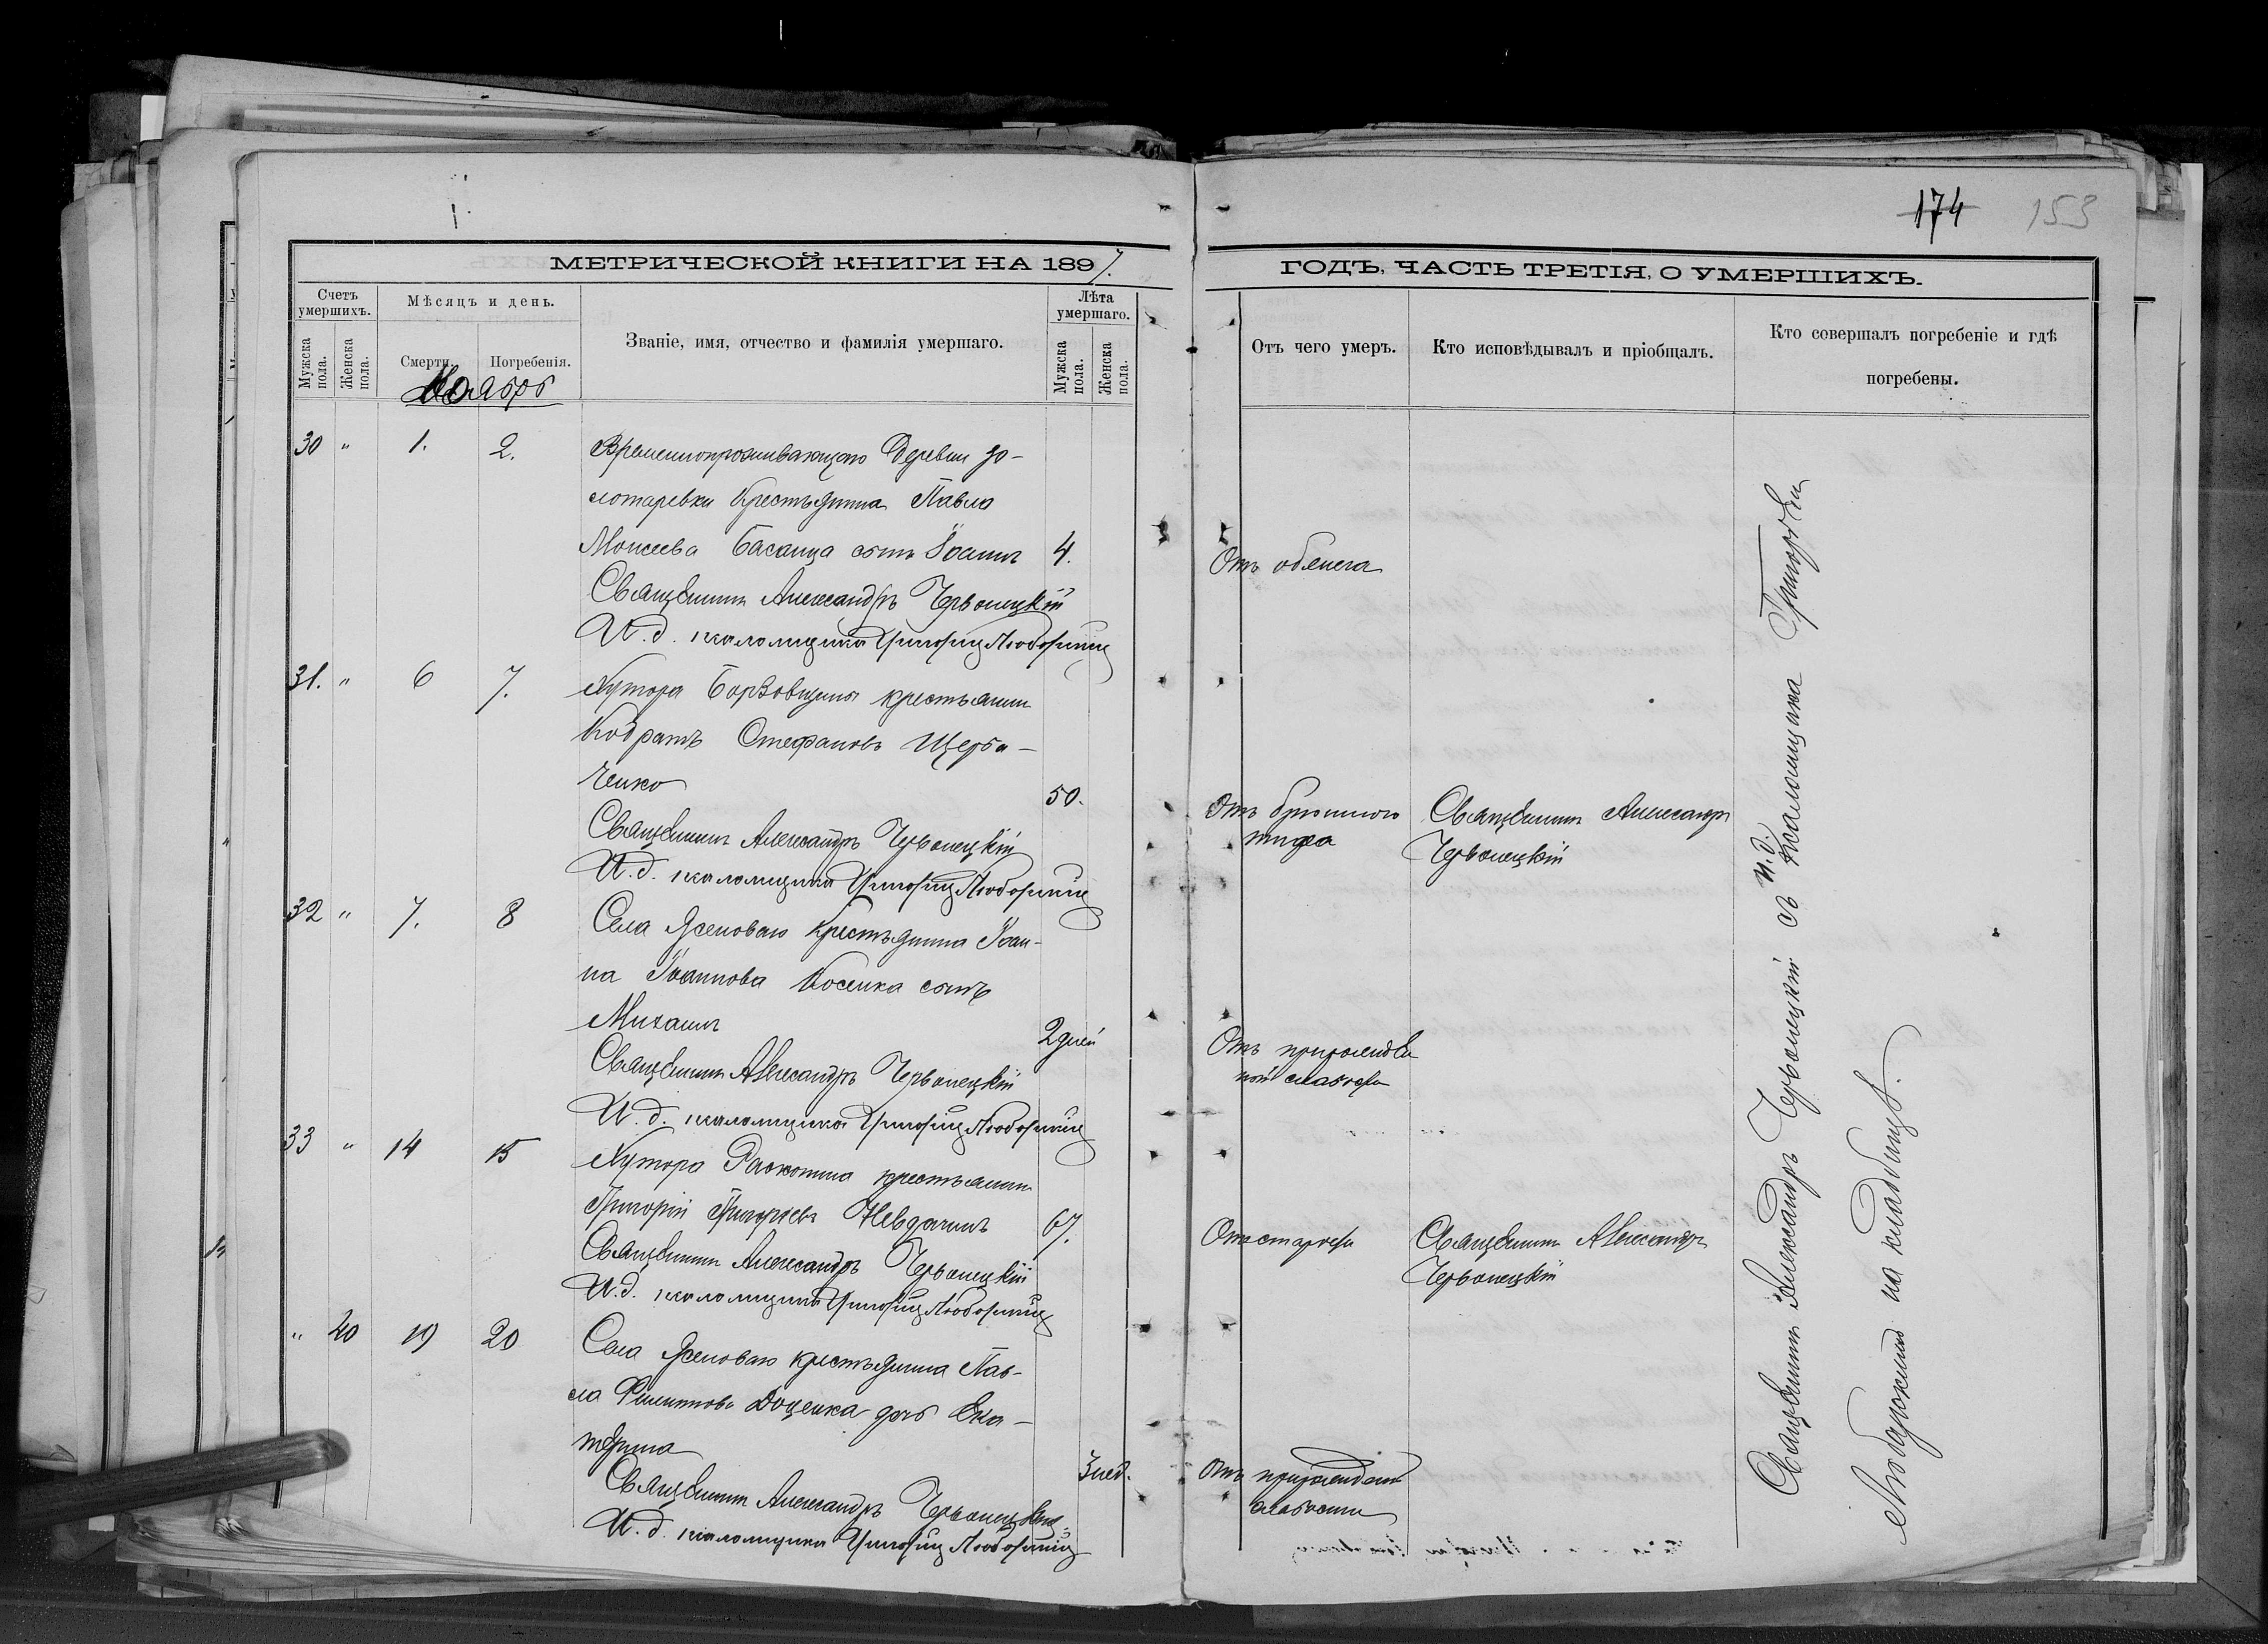 174 153
МЕТРИЧЕСКОЙ КНИГИ НА 1897.
ГОДЪ, ЧАСТЬ ТРЕТІЯ, О УМЕРШИХЪ.
Счетъ умершихъ.
Мѣсяцъ и день.
Званіе, имя, отчество и фамилія умершаго.
Лѣта умершаго.
Мужска пола.
Женска пола.
Смерти.
Погребенія.
Мужска пола.
Женска пола.
Отъ чего умеръ.
Кто исповѣдывалъ и пріобщалъ.
Кто совершалъ погребеніе и гдѣ
погребены.
Ноябрь
30 " 1. 2. Временнопроживающаго деревни Зо-
лотаревки крестьянина Павла
Моисеева Басанца сынъ Іоаннъ 4. Отъ обжега
Священникъ Александръ Червонецкій
И.д. псаломщика Григорій
31. " 6 7. Хутора крестьянинъ
Кодратъ Стефановъ Щерба-
ченко 50.
Отъ брюшного Священникъ Александръ
тифа Червонецкій
Священникъ Александръ Червонецкій
И.д. псаломщика Григорій
32 " 7. 8 Села Ясеноваго крестьянина Іоан-
на Іоаннова Косенка сынъ
Михаилъ 2 дней Отъ
ной слабости
Священникъ Александръ Червонецкій
И.д. псаломщика Григорій
33 " 14 15 Хутора крестьянинъ
Григорій Григорьевъ 67. Отъ старости Священникъ Александръ
Червонецкій
Священникъ Александръ Червонецкій
И.д. псаломщика Григорій
" 40 19 20 Села Ясеноваго крестьянина Пав-
ла Филиппова Доценка дочь Ека-
терина 3 нед. Отъ
слабости
Священникъ Александръ Червонецкій
И.д. псаломщика Григорій
Священникъ Александръ Червонецкій съ и.д. псаломщика Григоріемъ
на кладбищѣ.